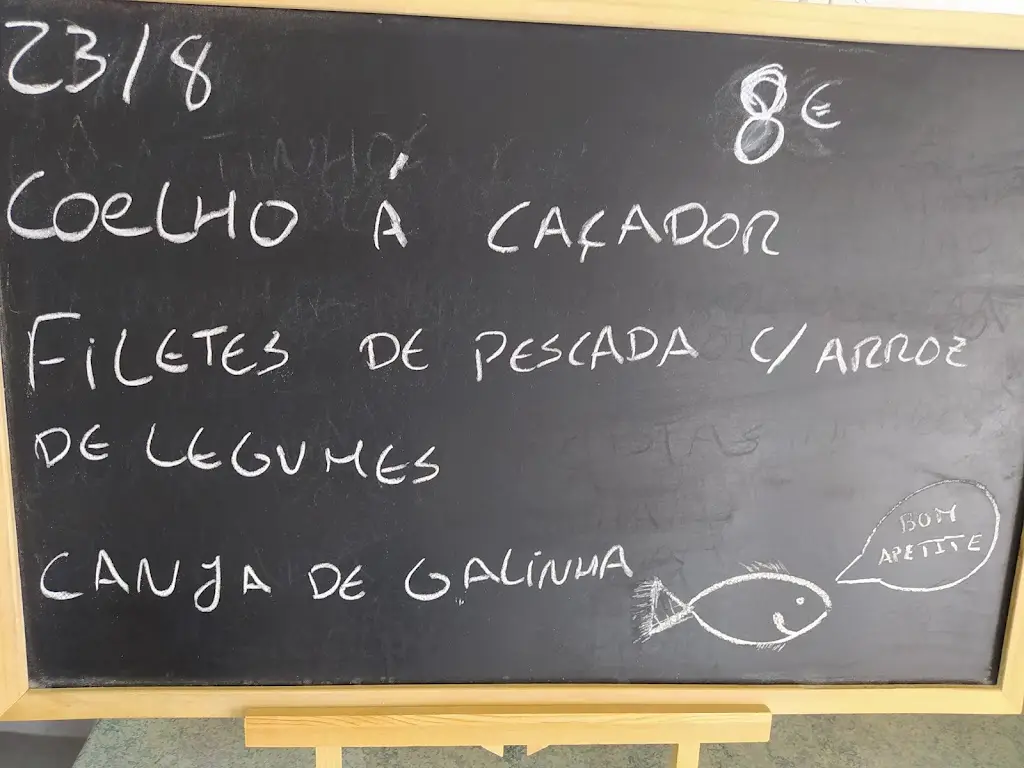 23/8
8€
COELHO Á CAÇADOR
FILETES DE PESCADA C/ ARROZ
DE LEGUMES
CANJA DE GALINHA
BOM
APETITE